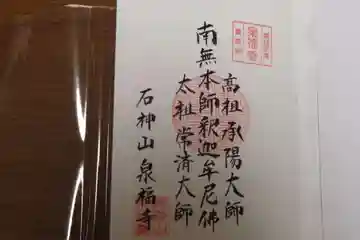 高祖承陽大師
南無本師釋迦牟尼佛
太祖常済大師
石神山 泉福寺